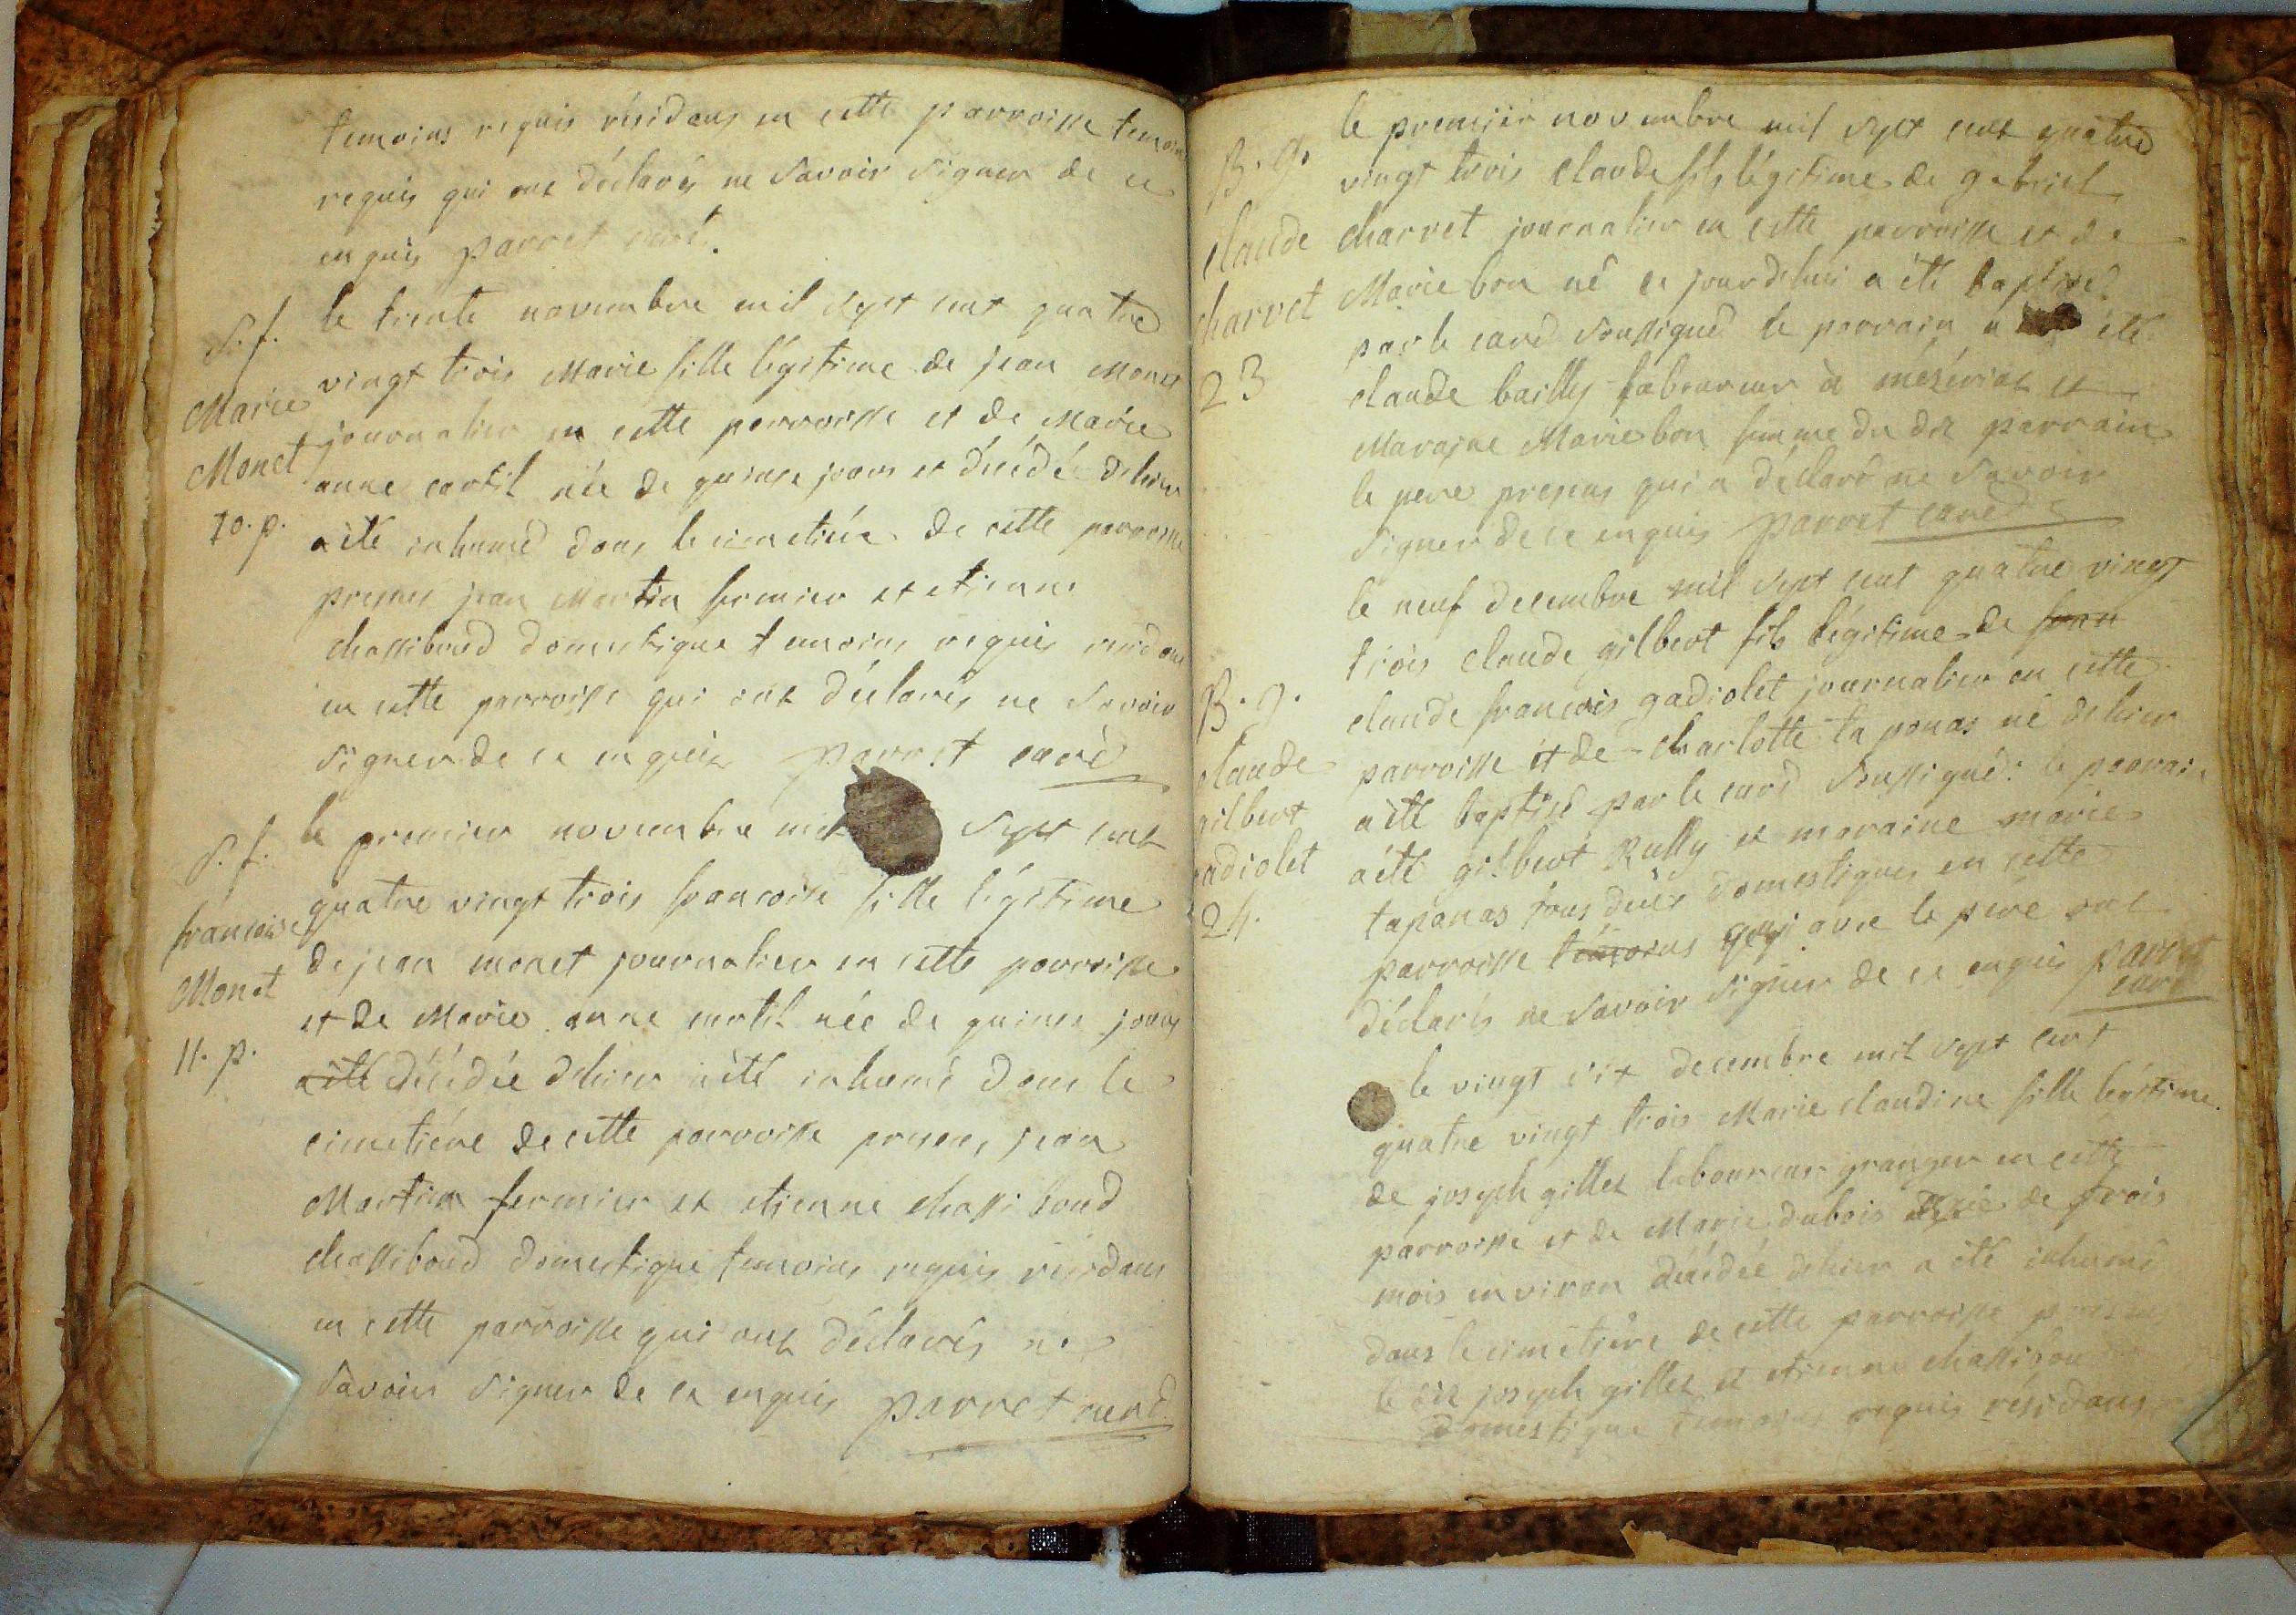 temoins requis résidans en cette parroisse temoins
requis qui ont déclarés ne savoir signer de ce
enquis parret curé.
S. f.
Marie
Monet
10. p.
le trente novembre mil sept cent quatre
vingt trois Marie fille légitime de jean Monet
journalier en cette parroisse et de Marie
anne cortil née de quinse jours et décédé dehier
a été inhumé dans le cimetiére de cette parroisse
presens jean Martin fermier et etienne
chassiboud domestique temoins requis residans
en cette parroisse qui ont déclarés ne savoir
signer de ce enquis parret curé
S. f.
francoise
Monet
11. p.
le premier novembre mil sept cent
quatre vingt trois francoise fille légitime
de jean monet journalier en cette parroisse
et de Marie anne cortil née de quinse jours
a été décédée dehier a été inhumé dans le
cimetiére de cette parroisse presens jean
Martin fermier et etienne chassiboud
chassiboud domestique temoins requis résidans
en cette parroisse qui ont déclarés ne
savoir signer de ce enquis parret curé
B. g.
claude
charvet
23
le premiér novembre mil sept cent quatre
vingt trois claude fils légitime de gabriel
charvet journalier en cette parroisse et de
Marie bon né ce jourdhui a été baptisé
par le curé soussigné le parrain a été
claude bailly laboureur à mézériat et
Maraine Marie bon femme du dit parrain
le pere presens qui a déclaré ne savoir
signer de ce enquis parret curé
B. g.
claude
gilbert
gadiolet
24.
le neuf decembre mil sept cent quatre vingt
trois claude gilbert fils légitime de jean
claude francois gadiolet journalier en cette
parroisse et de charlotte taponas né dehier
a été baptisé par le curé soussigné: le parrain
a été gilbert Rully et maraine marie
taponas tous deux domestiques en cette
parroisse temoins qui avec le pére ont
déclarés ne savoir signer de ce enquis parret
curé
le vingt six decembre mil sept cent
quatre vingt trois Marie claudine fille légitime
de joseph gillet laboureur granger en cette
parroisse et de Marie dubois agée de trois
mois environ décédée dehier a été inhumé
dans le cimetiére de cette parroisse presens
le dit joseph gillet et etienne chassibou
domestique temoins requis résidans